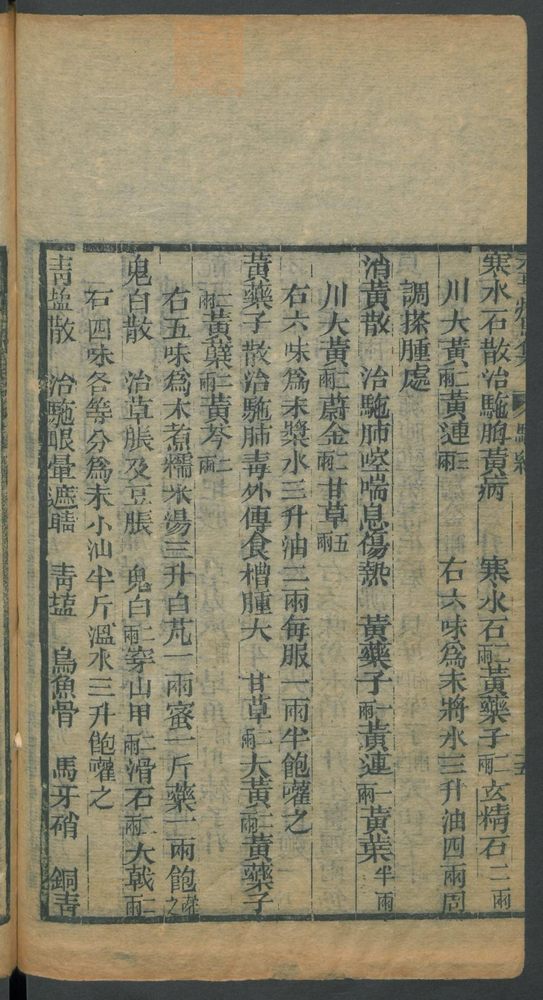 寒水石散治駞胸黄病　寒水石二兩黄藥子二兩玄精石二兩
川大黄二兩黄連二兩　右六味爲末將水三升油四兩周
調搽腫處
消黄散　治駞肺啌喘息傷熱　黄藥子一兩黄連一兩黄葉半兩
川大黄二兩蔚金二兩甘草五兩
右六味爲末漿水三升油二兩每服一兩半飽嚾之
黄藥子散治駞肺毒外傳食槽腫大　甘草二兩大黄二兩黄藥子
二兩黄蘗二兩黄芩二兩
右五味爲末煮糯米湯三升白芃一兩蜜一斤藥一兩飽嚾之
鬼白散　治草脹及豆脹　鬼白二兩穿山甲二兩滑石二兩大戟二兩
右四味各等分爲末小油半斤溫水三升飽嚾之
青盐散　治駞眼暈遮睛　青盐　烏魚骨　馬牙硝　銅青